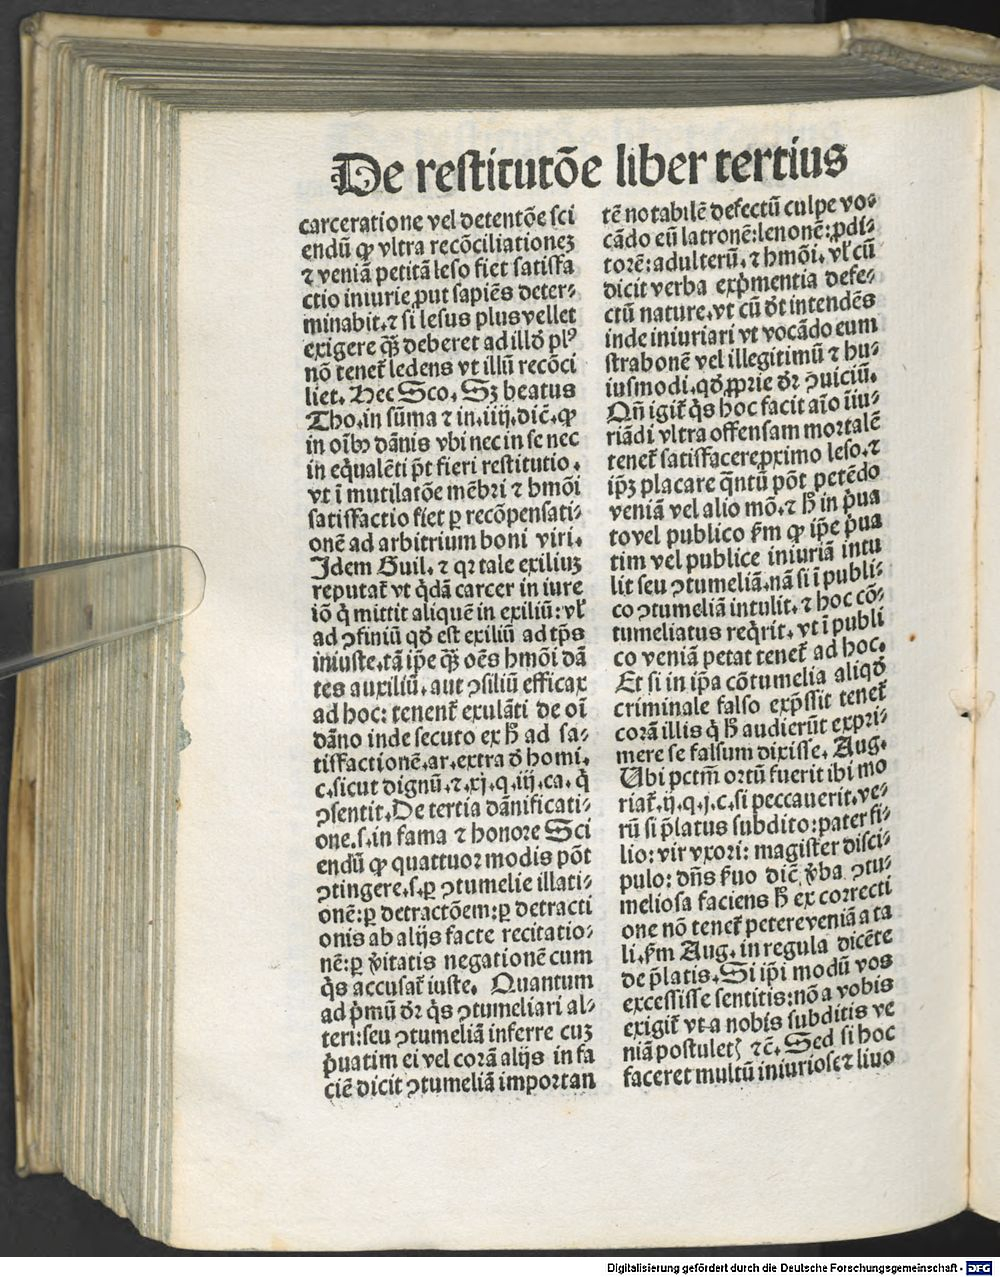 De restitutōe liber tertius
carceratione vel detentōe sci
endū ꝙ vltra recōciliationeꝫ
⁊ veniā petitā leso fiet satisfa
ctio iniurie ꝓut sapiēs deter⸗
minabit.⁊ si lesus plus vellet
exigere ꝙ̄ deberet ad illd̓ plꝰ
nō tenet᷑ ledens vt illū recōci
liet. Hec Sco. Sꝫ beatus
Tho.in sūma ⁊ in.iiij.dic̄.ꝙ
in oībꝰ dānis vbi nec in se nec
in eq̄ualēti pōt fieri restitutio.
vt ī mutilatōe mēbri ⁊ hmōi
satisfactio fiet ꝑ recōpensati⸗
onē ad arbitrium boni viri.
Idem Guil. ⁊ qꝛ tale exiliuꝫ
reputat᷑ vt q̇dā carcer in iure
iō q̇ mittit aliquē in exiliū: vl̓
ad ꝯfiniū qd̓ est exiliū ad tp̄s
iniuste.tā ip̄e ꝙ̄ oēs hmōi dā
tes auxiliū.aut ꝯsiliū efficax
ad hoc: tenent᷑ exulāti de oī
dāno inde secuto ex h̄ ad sa⸗
tisfactionē.ar.extra d̓ homi.
c.sicut dignū.⁊.xj.q.iij.ca.q̇
ꝯsentit.De tertia dānificati⸗
one.s.in fama ⁊ honore Sci
endū ꝙ quattuor modis pōt
ꝯtingere.s.ꝑ ꝯtumelie illati⸗
onē:ꝑ detractōem:ꝑ detracti
onis ab alijs facte recitatio⸗
nē:ꝑ v̓itatis negationē cum
q̇s accusat᷑ iuste. Quantum
ad p̄mū dr̄ q̇s ꝯtumeliari al⸗
teri:seu ꝯtumeliā inferre cuꝫ
p̄uatim ei vel corā alijs in fa
ciē dicit ꝯtumeliā importan
tē notabilē defectū culpe vo⸗
cādo eū latronē:lenonē:ꝓdi⸗
torē:adulterū.⁊ hmōi.vl̓ cū
dicit verba exp̄mentia defe⸗
ctū nature.vt cū dt̄ intendēs
inde iniuriari vt vocādo eum
strabonē vel illegitimū ⁊ hu⸗
iusmodi.qd̓ ꝓprie dr̄ ꝯuiciū.
Qn̄ igit᷑ q̇s hoc facit aīo īiu⸗
riādi vltra offensam mortalē
tenet᷑ satisfacere ꝓximo leso.⁊
ip̄ꝫ placare q̄ntū pōt petēdo
veniā vel alio mō.⁊ h̄ in p̄ua
to vel publico ẜm ꝙ ip̄e p̄ua
tim vel publice iniuriā intu
lit seu ꝯtumeliā.nā si ī publi⸗
co ꝯtumeliā intulit.⁊ hoc cō⸗
tumeliatus req̇rit.vt ī publi
co veniā petat tenet᷑ ad hoc.
Et si in ip̄a cōtumelia aliqd̓
criminale falso exp̄ssit tenet᷑
corā illis q̇ h̄ audierūt expri⸗
mere se falsum dixisse. Aug.
Ubi pctm̄ ortū fuerit ibi mo
riat᷑.ij.q.j.c.si peccauerit.ve⸗
rū si p̄latus subdito:pater fi⸗
lio:vir vxori: magister disci⸗
pulo: dn̄s ẜuo dic̄ v̓ba ꝯtu⸗
meliosa faciens h̄ ex correcti
one nō tenet᷑ petere veniā a ta
li.ẜm Aug. in regula dicēte
de p̄latis. Si ip̄i modū vos
excessisse sentitis:nō a vobis
exigit᷑ vt a nobis subditis ve
niā postuletꝭ ⁊c̄. Sed si hoc
faceret multū iniuriose ⁊ liuo
Digitalisierung gefördert durch die Deutsche Forschungsgemeinschaft - DFG